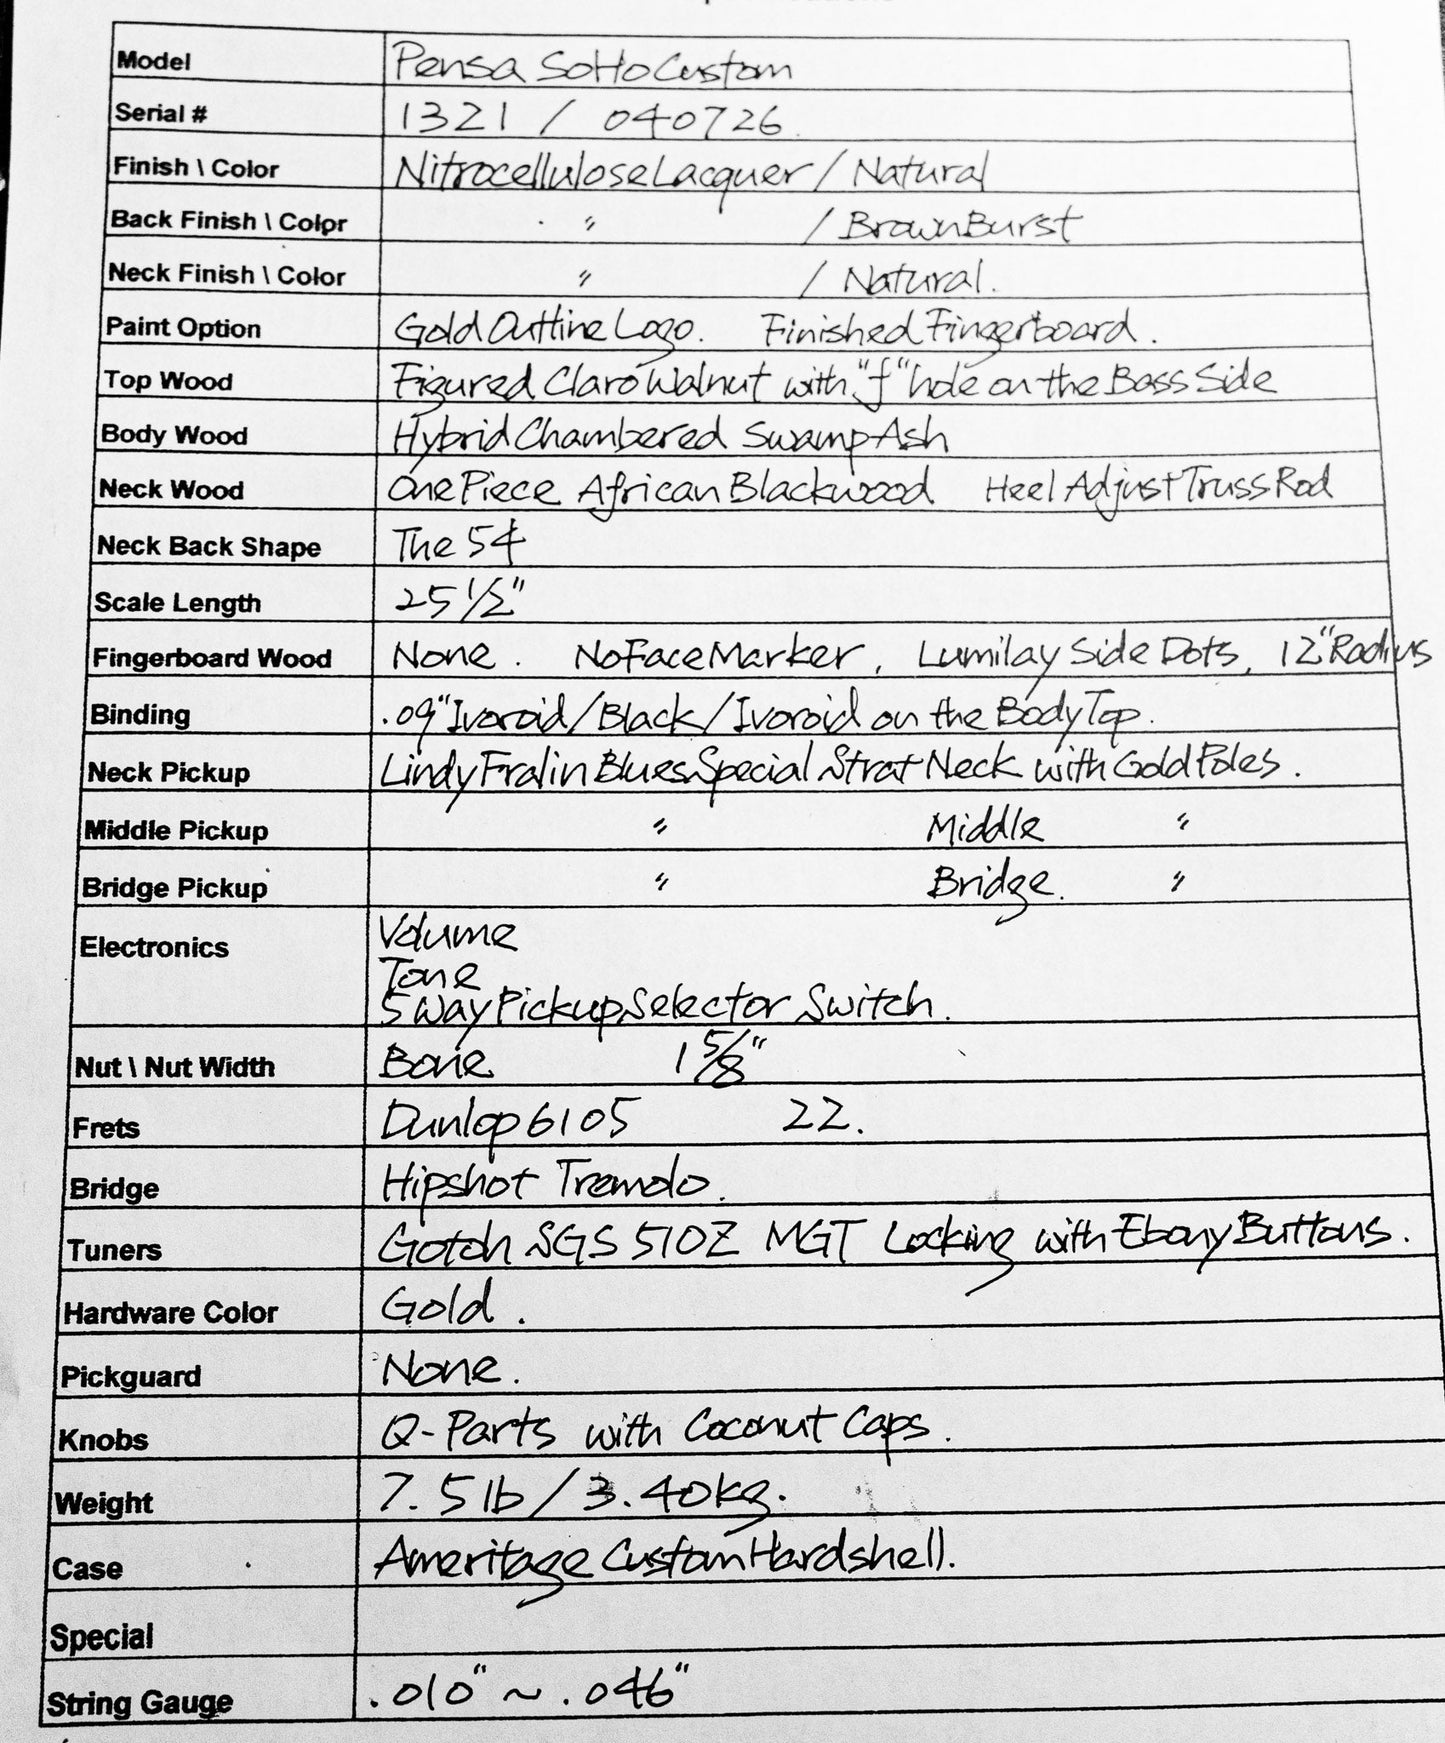 Model Pensa SoHo Custom
Serial # 1321 / 040726
Finish \ Color Nitrocellulose Lacquer / Natural
Back Finish \ Color 〃 / Brown Burst
Neck Finish \ Color 〃 / Natural.
Paint Option Gold Outline Logo. Finished Fingerboard.
Top Wood Figured Claro Walnut with "f" hole on the Bass Side
Body Wood Hybrid Chambered Swamp Ash
Neck Wood One Piece African Blackwood Heel Adjust Truss Rod
Neck Back Shape The 54
Scale Length 25 1/2"
Fingerboard Wood None. No Face Marker, Lumilay Side Dots, 12" Radius
Binding .09" Ivoroid/Black/Ivoroid on the Body Top.
Neck Pickup Lindy Fralin Blues Special Strat Neck with Gold Poles.
Middle Pickup 〃 Middle 〃
Bridge Pickup 〃 Bridge. 〃
Electronics Volume
Tone
5 Way Pickup Selector Switch.
Nut \ Nut Width Bone 1 5/8"
Frets Dunlop 6105 22.
Bridge Hipshot Tremolo.
Tuners Gotoh SGS 510Z MGT Locking with Ebony Buttons.
Hardware Color Gold.
Pickguard None.
Knobs Q-Parts with Coconut Caps.
Weight 7.5 lb / 3.40kg.
Case Ameritage Custom Hardshell.
Special
String Gauge .010" ~ .046"